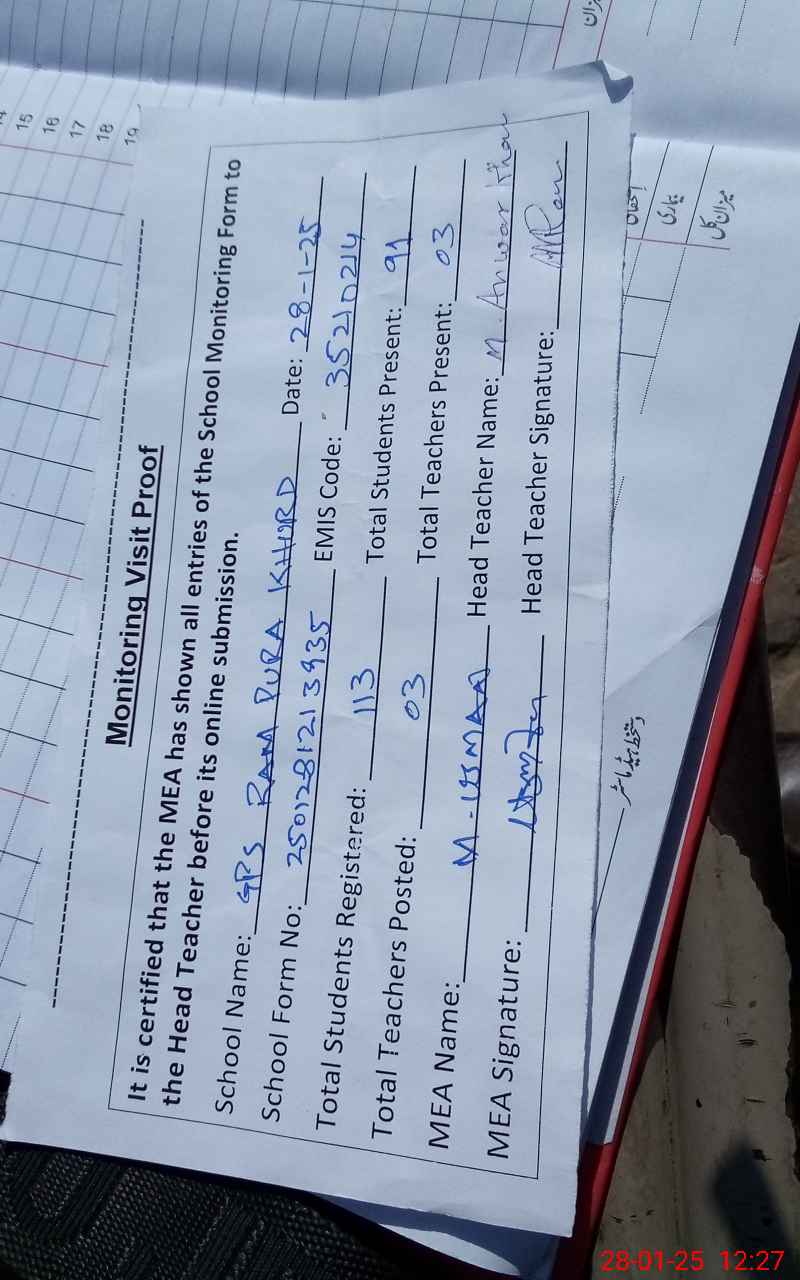 Monitoring Visit Proof
It is certified that the MEA has shown all entries of the School Monitoring Form to
the Head Teacher before its online submission.
School Name: GPS RAM PURA KHURD Date: 28-1-25
School Form No: 2501281213935 EMIS Code: 35210214
Total Students Registered: 113 Total Students Present: 91
Total Teachers Posted: 03 Total Teachers Present: 03
MEA Name: M-USMAAN Head Teacher Name: M. Anwar Khan
MEA Signature: Head Teacher Signature:
15
16
17
18
19
میزان کل
28-01-25 12:27